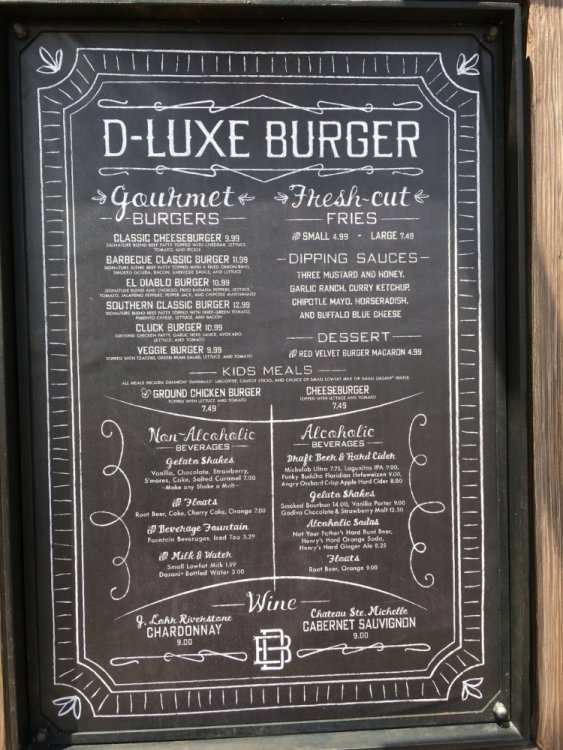 D-LUXE BURGER
Gourmet
BURGERS
CLASSIC CHEESEBURGER 9.99
SIGNATURE BLEND BEEF PATTY TOPPED WITH CHEDDAR, LETTUCE,
TOMATO, AND PICKLE
BARBECUE CLASSIC BURGER 11.99
SIGNATURE BLEND BEEF PATTY TOPPED WITH A FRIED ONION RING,
SMOKED GOUDA, BACON, BARBECUE SAUCE, AND LETTUCE
EL DIABLO BURGER 10.99
SIGNATURE BLEND AND CHORIZO, FRIED BANANA PEPPERS, LETTUCE,
TOMATO, JALAPEÑO PEPPERS, PEPPER JACK, AND CHIPOTLE MAYONNAISE
SOUTHERN CLASSIC BURGER 12.99
SIGNATURE BLEND BEEF PATTY TOPPED WITH FRIED GREEN TOMATO,
PIMENTO CHEESE, LETTUCE, AND BACON
CLUCK BURGER 10.99
GROUND CHICKEN PATTY, GARLIC HERB SAUCE, AVOCADO,
LETTUCE, AND TOMATO
VEGGIE BURGER 9.99
TOPPED WITH TZATZIKI, GREEN BEAN SALAD, LETTUCE, AND TOMATO
Fresh-cut
FRIES
SMALL 4.99 - LARGE 7.49
DIPPING SAUCES
THREE MUSTARD AND HONEY,
GARLIC RANCH, CURRY KETCHUP,
CHIPOTLE MAYO, HORSERADISH,
AND BUFFALO BLUE CHEESE
DESSERT
RED VELVET BURGER MACARON 4.99
KIDS MEALS
ALL MEALS INCLUDE: DANNON® DANIMALS® SMOOTHIE, CARROT STICKS, AND CHOICE OF SMALL LOWFAT MILK OR SMALL DASANI® WATER.
GROUND CHICKEN BURGER
TOPPED WITH LETTUCE AND TOMATO
7.49
CHEESEBURGER
TOPPED WITH LETTUCE AND TOMATO
7.49
Non-Alcoholic
BEVERAGES
Gelato Shakes
Vanilla, Chocolate, Strawberry,
S'mores, Cake, Salted Caramel 7.00
~Make any Shake a Malt~
Floats
Root Beer, Coke, Cherry Coke, Orange 7.00
Beverage Fountain
Fountain Beverages, Iced Tea 3.29
Milk & Water
Small Lowfat Milk 1.99
Dasani® Bottled Water 3.00
Alcoholic
BEVERAGES
Draft Beer & Hard Cider
Michelob Ultra 7.75, Lagunitas IPA 9.00,
Funky Buddha Floridian Hefeweizen 9.00,
Angry Orchard Crisp Apple Hard Cider 8.00
Gelato Shakes
Smoked Bourbon 14.00, Vanilla Porter 9.00
Godiva Chocolate & Strawberry Malt 12.50
Alcoholic Sodas
Not Your Father's Hard Root Beer,
Henry's Hard Orange Soda,
Henry's Hard Ginger Ale 8.25
Floats
Root Beer, Orange 9.00
Wine
J. Lohr Riverstone
CHARDONNAY
9.00
Chateau Ste. Michelle
CABERNET SAUVIGNON
9.00
DB